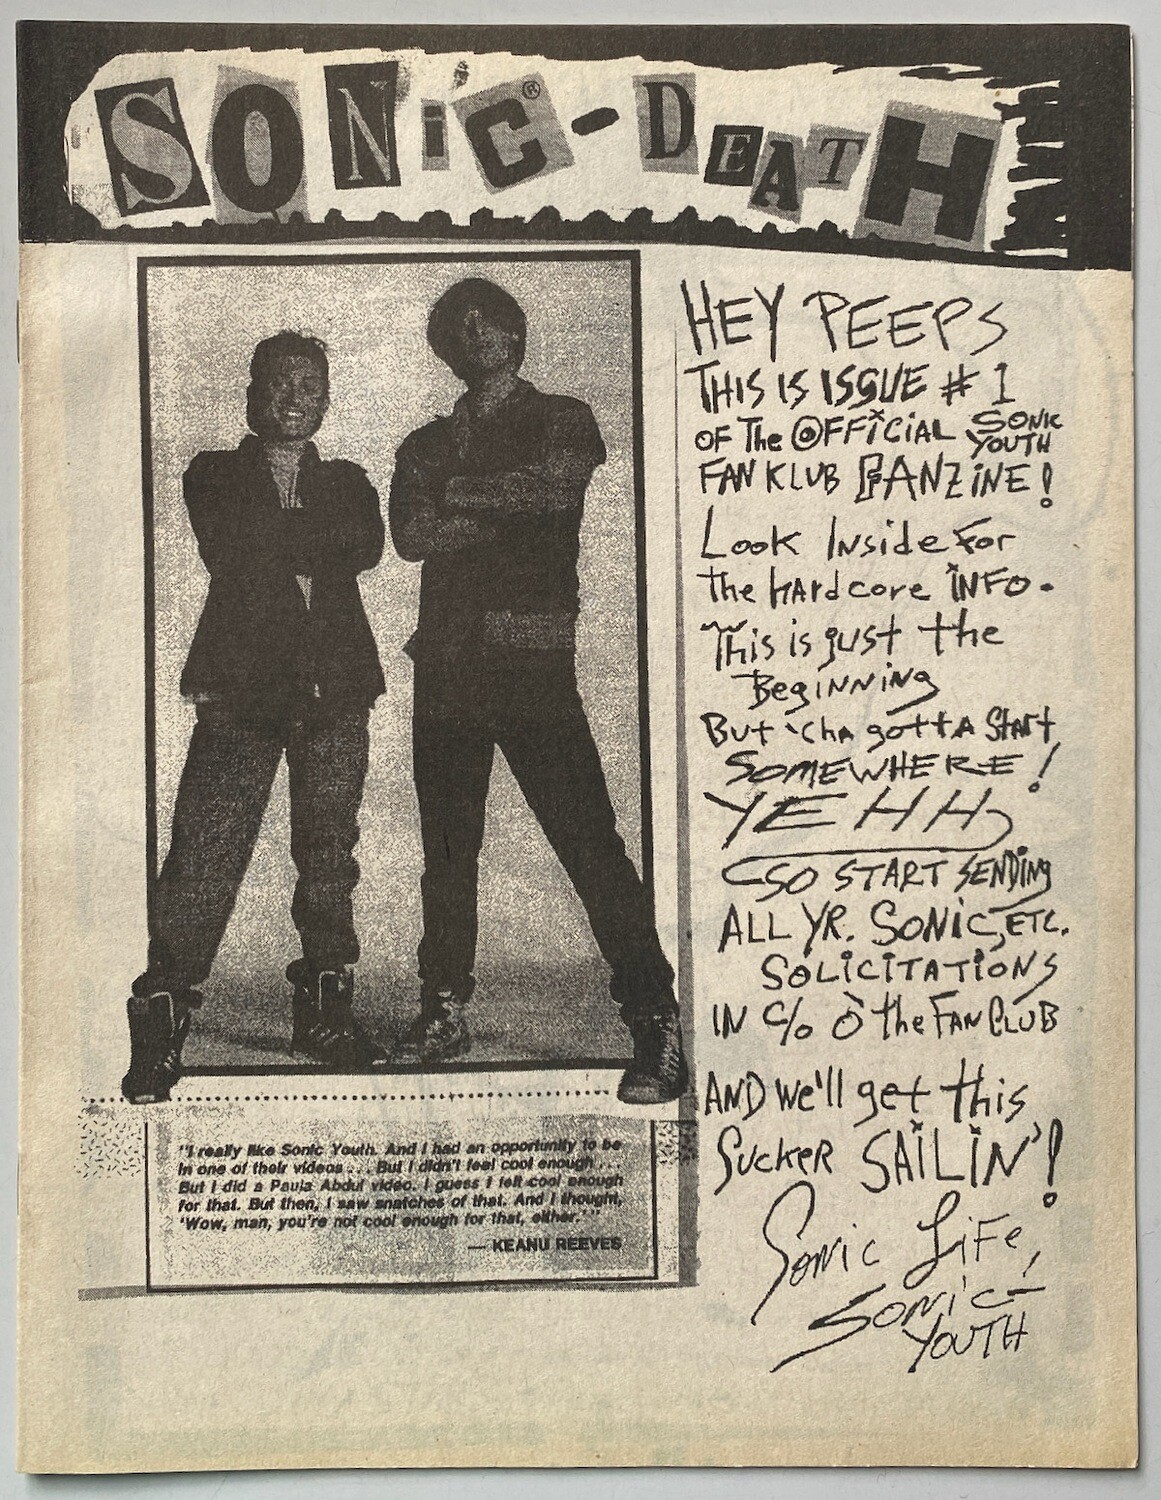 SONiC® - DEATH
HEY PEEPS
THIS IS ISSUE # 1
OF The OFFiCiAL SONIC YOUTH
FAN KLUB FANZiNE!
Look Inside For
the hArdcore iNFO.
This is just the
BegiNNiNg
But 'cha gottA StArt
SOMEWHERE!
YEHH,
SO START SENDiNg
ALL YR. SONiC, ETC.
SOLiCiTATiONS
IN c/o O' the FAN CLUB
AND we'll get this
SuckER SAiLiN'!
Sonic LiFe,
Sonic-
YOUTH
"I really like Sonic Youth. And I had an opportunity to be
in one of their videos . . . But I didn't feel cool enough . . .
But I did a Paula Abdul video. I guess I felt cool enough
for that. But then, I saw snatches of that. And I thought,
'Wow, man, you're not cool enough for that, either.' "
— KEANU REEVES